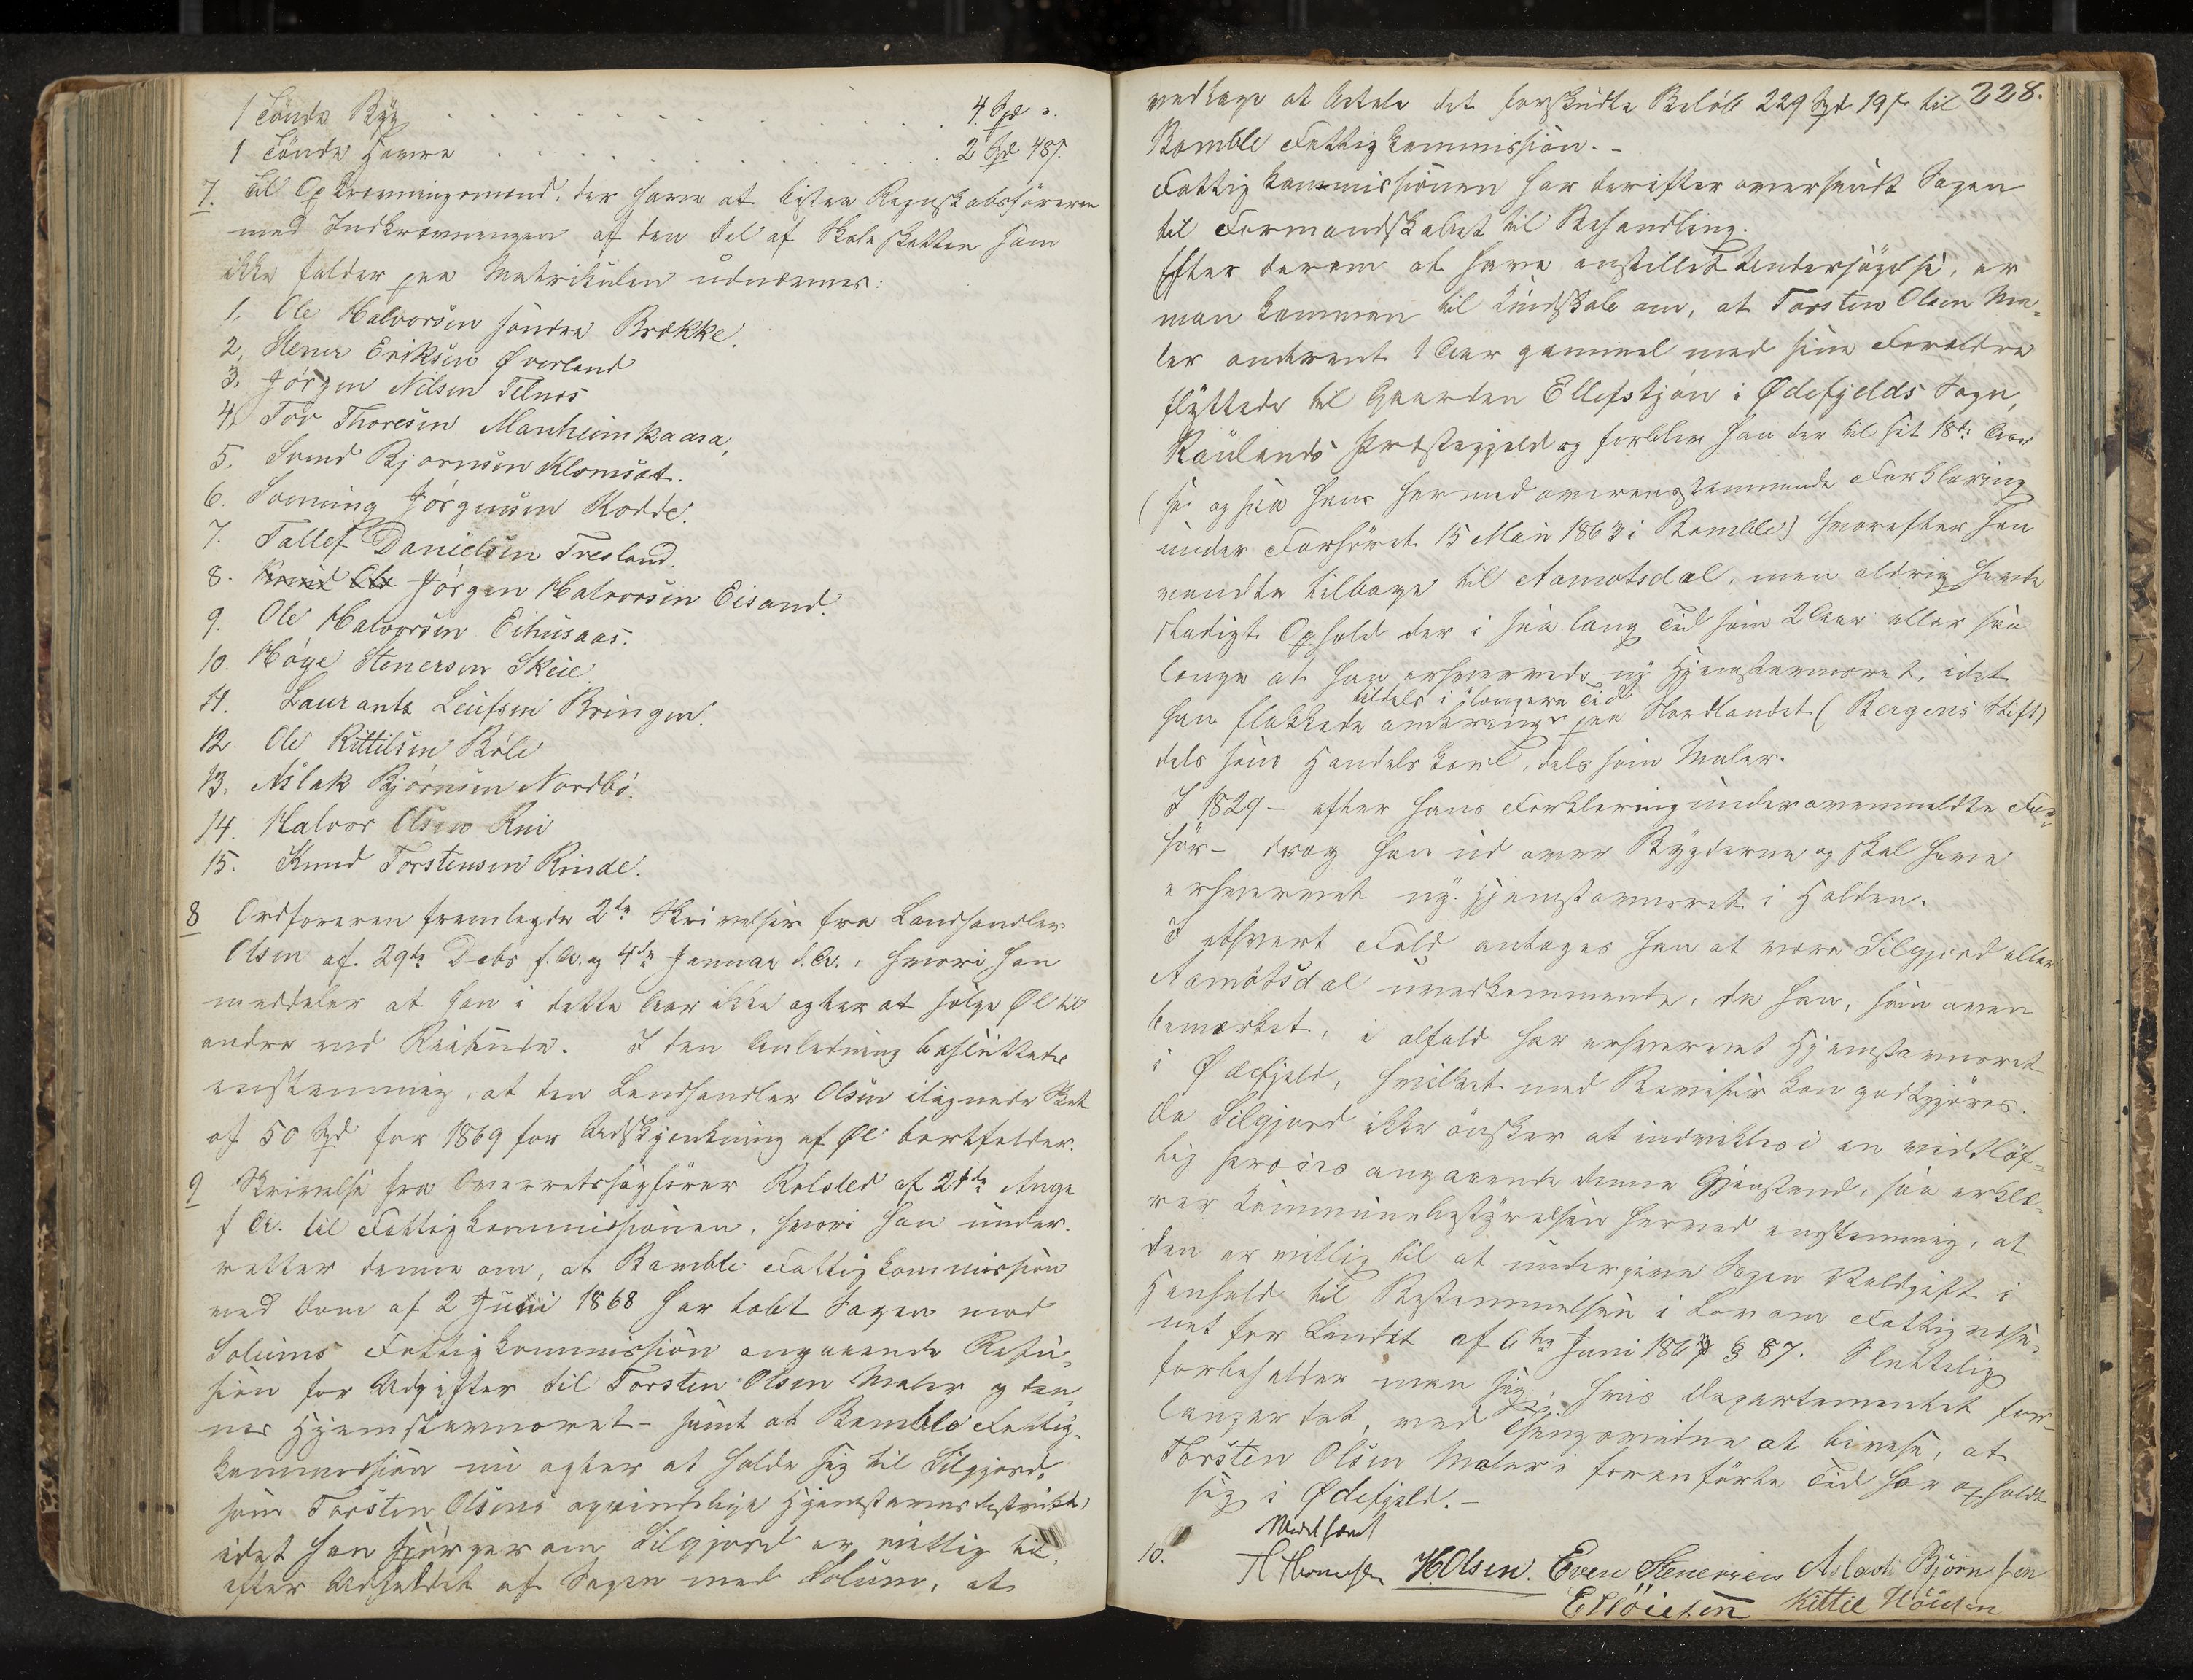 1 Tönde Byg . . . . . . . . . . 4 Spd ".
1 Tönde Havre . . . . . . . . . . 2 Spd 48 s.
7. Til Opkrævningsmænd, der have at bistaa Regnskabsföreren
med Indkrævningen af den Del af Skoleskatten som
ikke falder paa Matrikulen udnævnes:
1. Ole Halvorsen söndre Brække.
2. Stener Eriksen Øverland
3. Jörgen Nilsen Telnes
4. Tov Thoresen Manheimkaasa,
5. Svend Bjørnsen Klomset.
6. Sveinung Jörgensen Kodde.
7. Tallef Danielsen Tresland.
8. Jörgen Halvorsen Eisand.
9. Ole Halvorsen Eihusaas.
10. Höye Stenersen Skeie.
11. Laurants Leufsen Bringen.
12. Ole Kittilsen Böle
13. Aslak Bjørnsen Nordbö.
14. Halvor Olsen Rui
15. Knud Torstensen Rinde.
8 Ordføreren fremlagde 2de Skrivelser fra Landhandler
Olsen af 29de Decbr f. A. og 4de Januar d. A., hvori han
meddeler at han i dette Aar ikke agter at sælge Øl til
andre end Reisende. I den Anledning besluttedes
enstemmig, at den Landhandler Olsen ilignede Skat
af 50 Spd for 1869 for Udskjænkning af Øl bortfalder.
9 Skrivelse fra Overretssagförer Rolsted af 21de Augu
f A. til Fattigkommissionen, hvori han under-
retter denne om, at Bamble Fattigkommission
ved Dom af 2 Juni 1868 har tabt Sagen mod
Solums Fattigkommission angaaende Refu-
sion for Udgifter til Torsten Olsen Maler og den-
nes Hjemstavnsret - samt at Bamble Fattig-
kommission nu agter at holde sig til Silgjord,
som Torsten Olsens oprindelige Hjemstavnsdistrikt,
idet han spörger om Silgjord er villig til,
efter Udfaldet af Sagen med Solum, at
228.
vedtage at betale det forskudte Belöb 229 Spd 19 s til
Bamble Fattigkommission. -
Fattigkommissionen har derefter oversendt Sagen
til Formandskabet til Behandling.
Efter derom at have anstillet Undersögelse, er
man kommen til Kundskab om, at Torsten Olsen Ma-
ler omtrent 1 Aar gammel med sine Forældre
flyttede til Gaarden Ellefstjön i Ødefjelds Sogn,
Raulands Præstegjeld og forblev han der til sit 18de Aar
(se ogsaa hans hermed overensstemmende Forklaring
under Forhöret 15 Mai 1863 i Bamble) hvorefter han
vendte tilbage til Aamotsdal, men aldrig havde
stadigt Ophold der i saa lang Tid som 2 Aar eller saa
længe at han erhvervede ny Hjemstavnsret, idet
tildels i længere Tid
han flakkede omkring paa Nordlandet (Bergens Stift)
dels som Handelskarl, dels som Maler.
I 1829 - efter hans Forklaring under ovenmeldte For-
hör - drog han ud over Bygderne og skal have
erhvervet ny Hjemstavnsret i Holden.
I ethvert Fald antages han at være Silgjord eller
Aamotsdal uvedkommende, da han, som oven
bemærket, i alfald har erhvervet Hjemstavnsret
i Ødefjeld, hvilket med Beviser kan godtgjöres.
Da Silgjord ikke önsker at indvikles i en vidtlöf-
tig Proces angaaende denne Gjenstand, saa erklæ-
rer Kommunebestyrelsen herved enstemmig, at
den er villig til at undergive Sagen Voldgift i
Henhold til Bestemmelsen i Lov om Fattigvæse-
net for Landet af 6te Juni 1863 § 87. Sluttelig
forbeholder man sig, hvis Departementet for-
langer det, ved Thingsvidne at bevise, at
Torsten Olsen Maler i foranförte Tid har opholdt
sig i Ødefjeld. -
10. Vedtaget
H. Olsen. Even Stenersen Aslack Bjørnsen
Kittil Höiesen